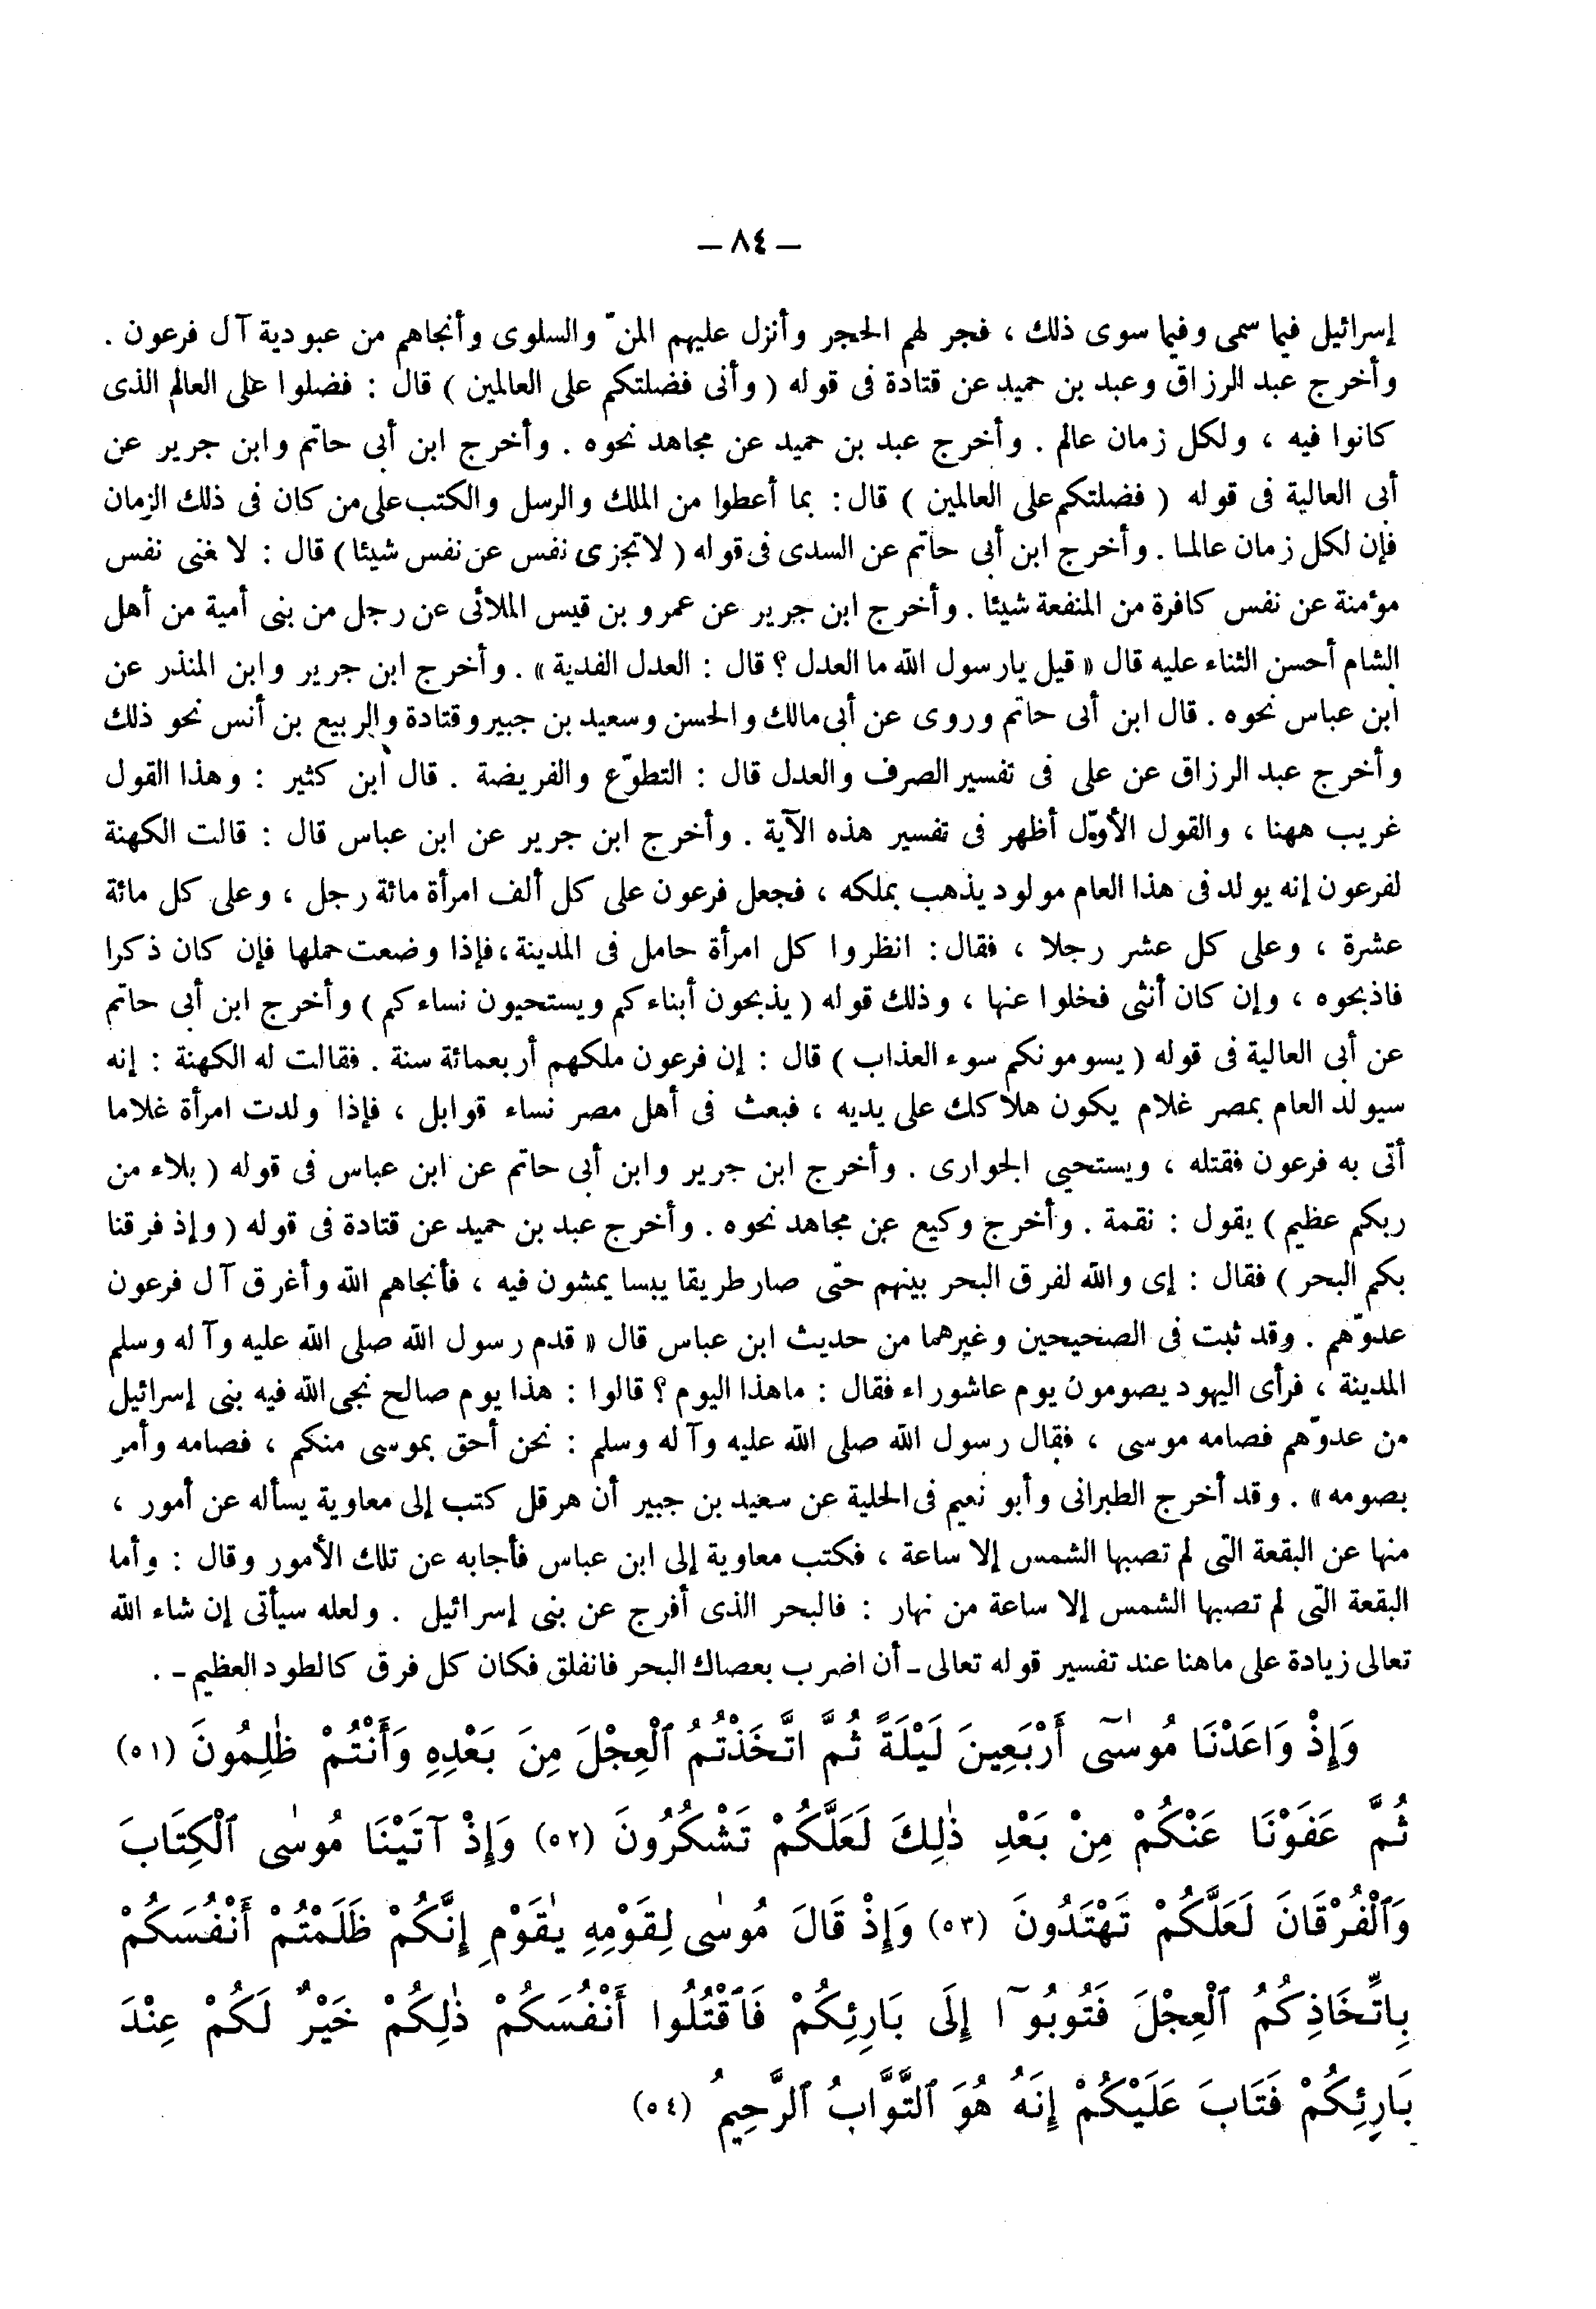 — ٨٤ —
إسرائيل فيما سمى وفيما سوى ذلك ، فجر لهم الحجر وأنزل عليهم المنّ والسلوى وأنجاهم من عبودية آل فرعون .
وأخرج عبد الرزاق وعبد بن حميد عن قتادة فى قوله ( وأنى فضلتكم على العالمين ) قال : فضلوا على العالم الذى
كانوا فيه ، ولكل زمان عالم . وأخرج عبد بن حميد عن مجاهد نحوه . وأخرج ابن أبى حاتم وابن جرير عن
أبى العالية فى قوله ( فضلتكم على العالمين ) قال : بما أعطوا من الملك والرسل والكتب على من كان فى ذلك الزمان
فإن لكل زمان عالما . وأخرج ابن أبى حاتم عن السدى فى قوله ( لا تجزى نفس عن نفس شيئا ) قال : لا غنى نفس
مؤمنة عن نفس كافرة من المنفعة شيئا . وأخرج ابن جرير عن عمرو بن قيس الملائى عن رجل من بنى أمية من أهل
الشام أحسن الثناء عليه قال « قيل يارسول الله ما العدل ؟ قال : العدل الفدية » . وأخرج ابن جرير وابن المنذر عن
ابن عباس نحوه . قال ابن أبى حاتم وروى عن أبى مالك والحسن وسعيد بن جبير وقتادة والربيع بن أنس نحو ذلك
وأخرج عبد الرزاق عن على فى تفسير الصرف والعدل قال : التطوّع والفريضة . قال ابن كثير : وهذا القول
غريب ههنا ، والقول الأوّل أظهر فى تفسير هذه الآية . وأخرج ابن جرير عن ابن عباس قال : قالت الكهنة
لفرعون إنه يولد فى هذا العام مولود يذهب بملكه ، فجعل فرعون على كل ألف امرأة مائة رجل ، وعلى كل مائة
عشرة ، وعلى كل عشر رجلا ، فقال : انظروا كل امرأة حامل فى المدينة ، فإذا وضعت حملها فإن كان ذكرا
فاذبحوه ، وإن كان أنثى فخلوا عنها ، وذلك قوله ( يذبحون أبناءكم ويستحيون نساءكم ) وأخرج ابن أبى حاتم
عن أبى العالية فى قوله ( يسومونكم سوء العذاب ) قال : إن فرعون ملكهم أربعمائة سنة . فقالت له الكهنة : إنه
سيولد العام بمصر غلام يكون هلاكك على يديه ، فبعث فى أهل مصر نساء قوابل ، فإذا ولدت امرأة غلاما
أتى به فرعون فقتله ، ويستحيى الجوارى . وأخرج ابن جرير وابن أبى حاتم عن ابن عباس فى قوله ( بلاء من
ربكم عظيم ) يقول : نقمة . وأخرج وكيع عن مجاهد نحوه . وأخرج عبد بن حميد عن قتادة فى قوله ( وإذ فرقنا
بكم البحر ) فقال : إى والله لفرق البحر بينهم حتى صار طريقا يبسا يمشون فيه ، فأنجاهم الله وأغرق آل فرعون
عدوّهم . وقد ثبت فى الصحيحين وغيرهما من حديث ابن عباس قال « قدم رسول الله صلى الله عليه وآله وسلم
المدينة ، فرأى اليهود يصومون يوم عاشوراء فقال : ماهذا اليوم ؟ قالوا : هذا يوم صالح نجى الله فيه بنى إسرائيل
من عدوّهم فصامه موسى ، فقال رسول الله صلى الله عليه وآله وسلم : نحن أحق بموسى منكم ، فصامه وأمر
بصومه » . وقد أخرج الطبرانى وأبو نعيم فى الحلية عن سعيد بن جبير أن هرقل كتب إلى معاوية يسأله عن أمور ،
منها عن البقعة التى لم تصبها الشمس إلا ساعة ، فكتب معاوية إلى ابن عباس فأجابه عن تلك الأمور وقال : وأما
البقعة التى لم تصبها الشمس إلا ساعة من نهار : فالبحر الذى أفرج عن بنى إسرائيل . ولعله سيأتى إن شاء الله
تعالى زيادة على ماهنا عند تفسير قوله تعالى ـ أن اضرب بعصاك البحر فانفلق فكان كل فرق كالطود العظيم ـ .
وَإِذْ وَاعَدْنَا مُوسٰٓى أَرْبَعِينَ لَيْلَةً ثُمَّ اتَّخَذْتُمُ ٱلْعِجْلَ مِنَ بَعْدِهِ وَأَنْتُمْ ظٰلِمُونَ (٥١)
ثُمَّ عَفَوْنَا عَنْكُمْ مِنْ بَعْدِ ذٰلِكَ لَعَلَّكُمْ تَشْكُرُونَ (٥٢) وَإِذْ آتَيْنَا مُوسٰى ٱلْكِتَابَ
وَٱلْفُرْقَانَ لَعَلَّكُمْ تَهْتَدُونَ (٥٣) وَإِذْ قَالَ مُوسٰى لِقَوْمِهِ يٰقَوْمِ إِنَّكُمْ ظَلَمْتُمْ أَنْفُسَكُمْ
بِاتِّخَاذِكُمُ ٱلْعِجْلَ فَتُوبُوٓا إِلَى بَارِئِكُمْ فَٱقْتُلُوا أَنْفُسَكُمْ ذٰلِكُمْ خَيْرٌ لَكُمْ عِنْدَ
بَارِئِكُمْ فَتَابَ عَلَيْكُمْ إِنَهُ هُوَ ٱلتَّوَّابُ ٱلرَّحِيمُ (٥٤)